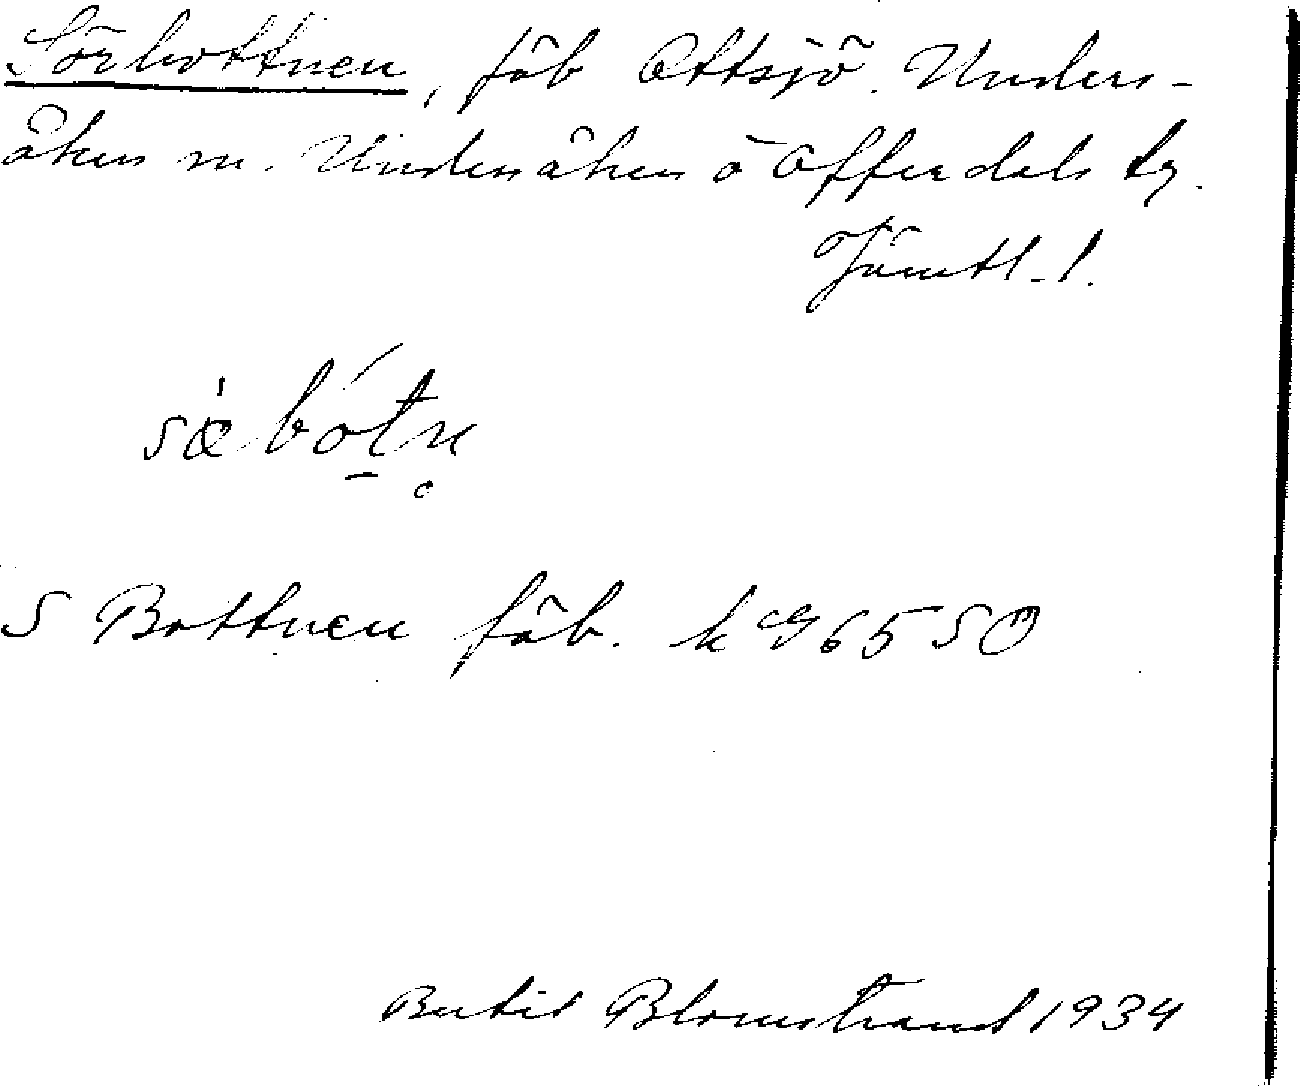 Sörbottnen, fäb Ottsjö. Unders-
åkers sn. Undersåkers o Offerdals tg.
Jämtl. l.
sœ̀bótn̥
S Bottnen fäb. k 96550
Bertil Blomstrand 1934